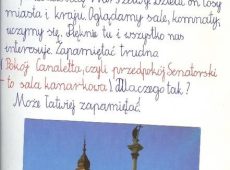 miasta i kraju. Oglądamy sale, komnaty,
uczymy się. Pięknie tu i wszystko nas
interesuje. Zapamiętać trudna
Pokój Canaletta, czyli przedpokój Senatorski
to sala kanarkowa! Dlaczego tak?
Może łatwiej zapamiętać.